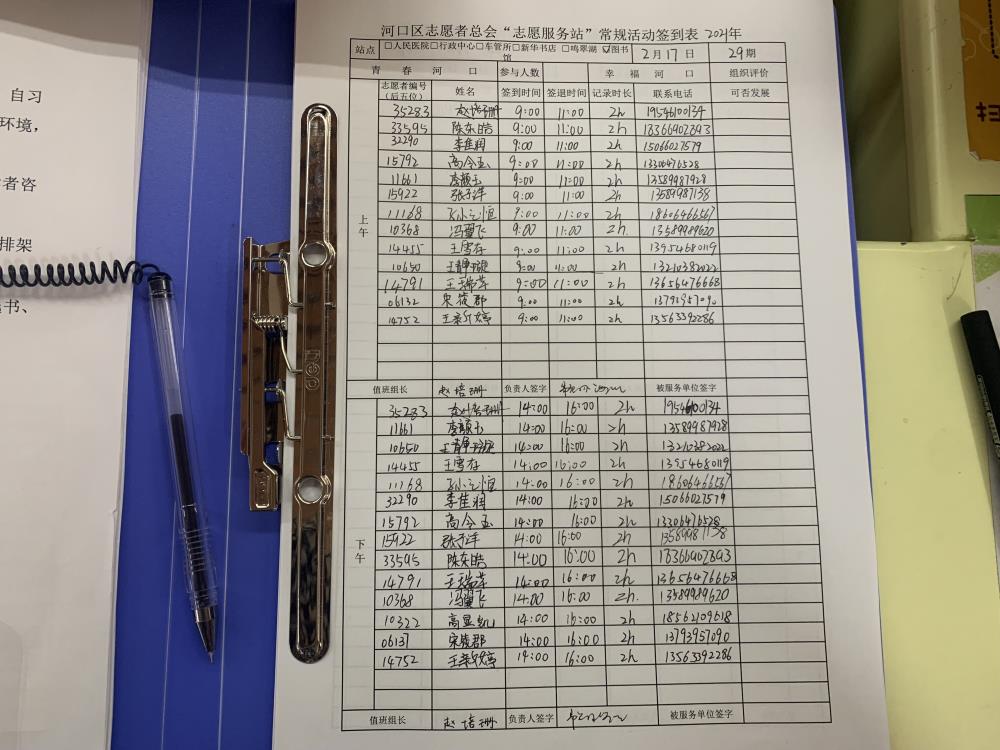 自习
环境,
者咨
排架
书、
deli
河口区志愿者总会“志愿服务站”常规活动签到表 2021年
站点 □人民医院□行政中心□车管所□新华书店 □鸣翠湖 ☑图书馆 2月17日 29期
青春河口 参与人数 幸福河口 组织评价
志愿者编号(后五位) 姓名 签到时间 签退时间 记录时长 联系电话 可否发展
上午
35283 赵培珊 9:00 11:00 2h 19546100134
33595 陈东皓 9:00 11:00 2h 18366902893
32290 李佳润 9:00 11:00 2h 15066027579
15792 高令玉 9:00 11:00 2h 13306476528
11661 9:00 11:00 2h 13589987928
15922 张子洋 9:00 11:00 2h 13589987138
11168 9:00 11:00 2h 18606466567
10368 冯翼飞 9:00 11:00 2h. 13589989620
14455 王雪存 9:00 11:00 2h 13954680119
10650 王静璇 9:00 11:00 2h 13210382022
14791 王瑞萍 9:00 11:00 2h 13656476668
06132 宋筱郡 9:00 11:00 2h
14752 9:00 11:00 2h 13563392286
值班组长 赵培珊 负责人签字 被服务单位签字
下午
35283 赵培珊 14:00 16:00 2h 19546100134
11661 14:00 16:00 2h 13589987928
10650 王静璇 14:00 16:00 2h 13210382022
14455 王雪存 14:00 16:00 2h 13954680119
11168 14:00 16:00 2h 18606466567
32290 李佳润 14:00 16:00 2h 15066027579
15792 高令玉 14:00 16:00 2h 13306476528
15922 张子洋 14:00 16:00 2h 13589987138
33595 陈东皓 14:00 16:00 2h 18366902893
14791 王瑞萍 14:00 16:00 2h 13656476668
10368 冯翼飞 14:00 16:00 2h. 13589989620
10322 高显凯 14:00 16:00 2h 18562109618
06137 宋筱郡 14:00 16:00 2h 13793957090
14752 14:00 16:00 2h 13563392286
值班组长 赵培珊 负责人签字 被服务单位签字